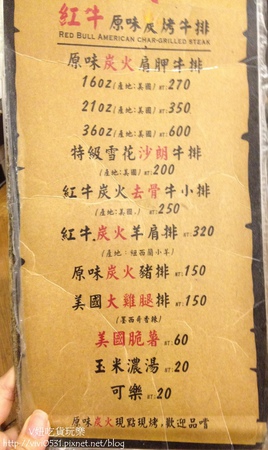 紅牛 原味炭烤牛排
RED BULL AMERICAN CHAR-GRILLED STEAK
原味炭火肩胛牛排
16oz(產地:美國) NT:270
21oz(產地:美國) NT:350
36oz(產地:美國) NT:600
特級雪花沙朗牛排
(產地:美國) NT:200
紅牛炭火去骨牛小排
(產地:美國.) NT:250
紅牛.炭火羊肩排 NT:320
(產地:紐西蘭小羊)
原味炭火豬排 NT:150
美國大雞腿排 NT:150
(墨西哥香辣)
美國脆薯 NT:60
玉米濃湯 NT:20
可樂 NT:20
原味炭火現點現烤,歡迎品嚐
http://vivi0531.pixnet.net/blog